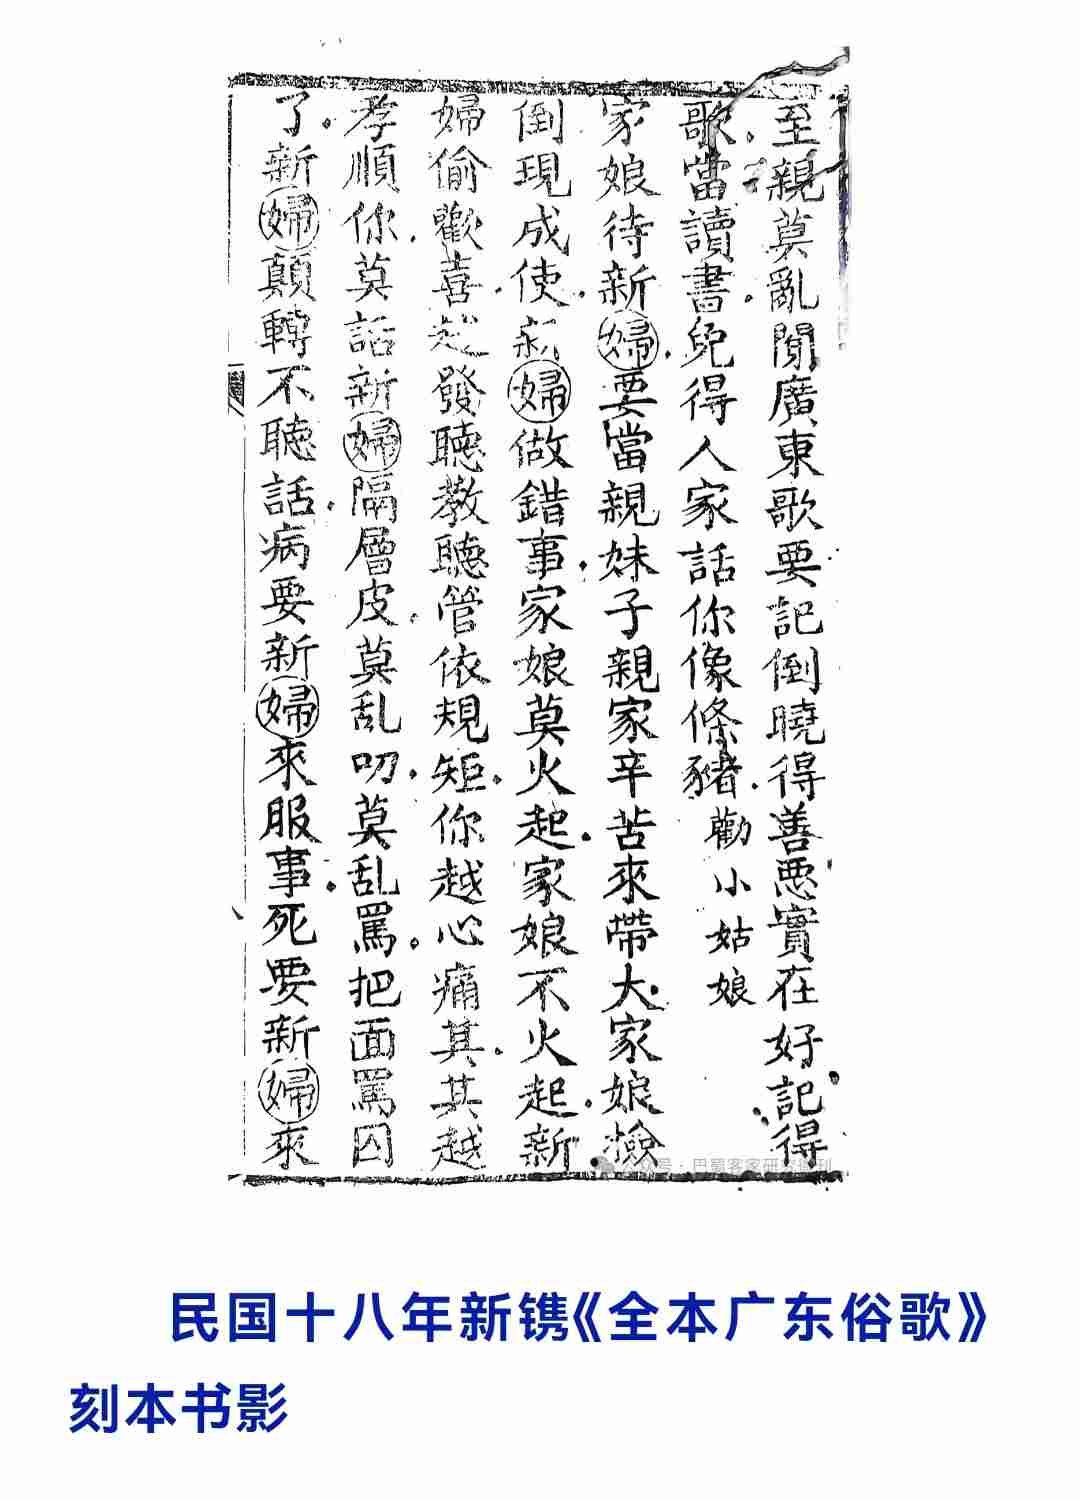 至親莫亂閙廣東歌要記倒曉得善恶實在好記得
歌當讀書免得人家話你像條豬 勸小姑娘
家娘待新婦要當親妹子親家辛苦來帶大家娘撿
倒現成使新婦做錯事家娘莫火起家娘不火起新
婦偷歡喜越發聽教聽管依規矩你越心痛其其越
孝順你莫話新婦隔層皮莫乱叨莫乱罵把面罵囚
了新婦顛轉不聽話病要新婦來服事死要新婦來
公众号·巴蜀客家研究集刊
民国十八年新镌《全本广东俗歌》
刻本书影